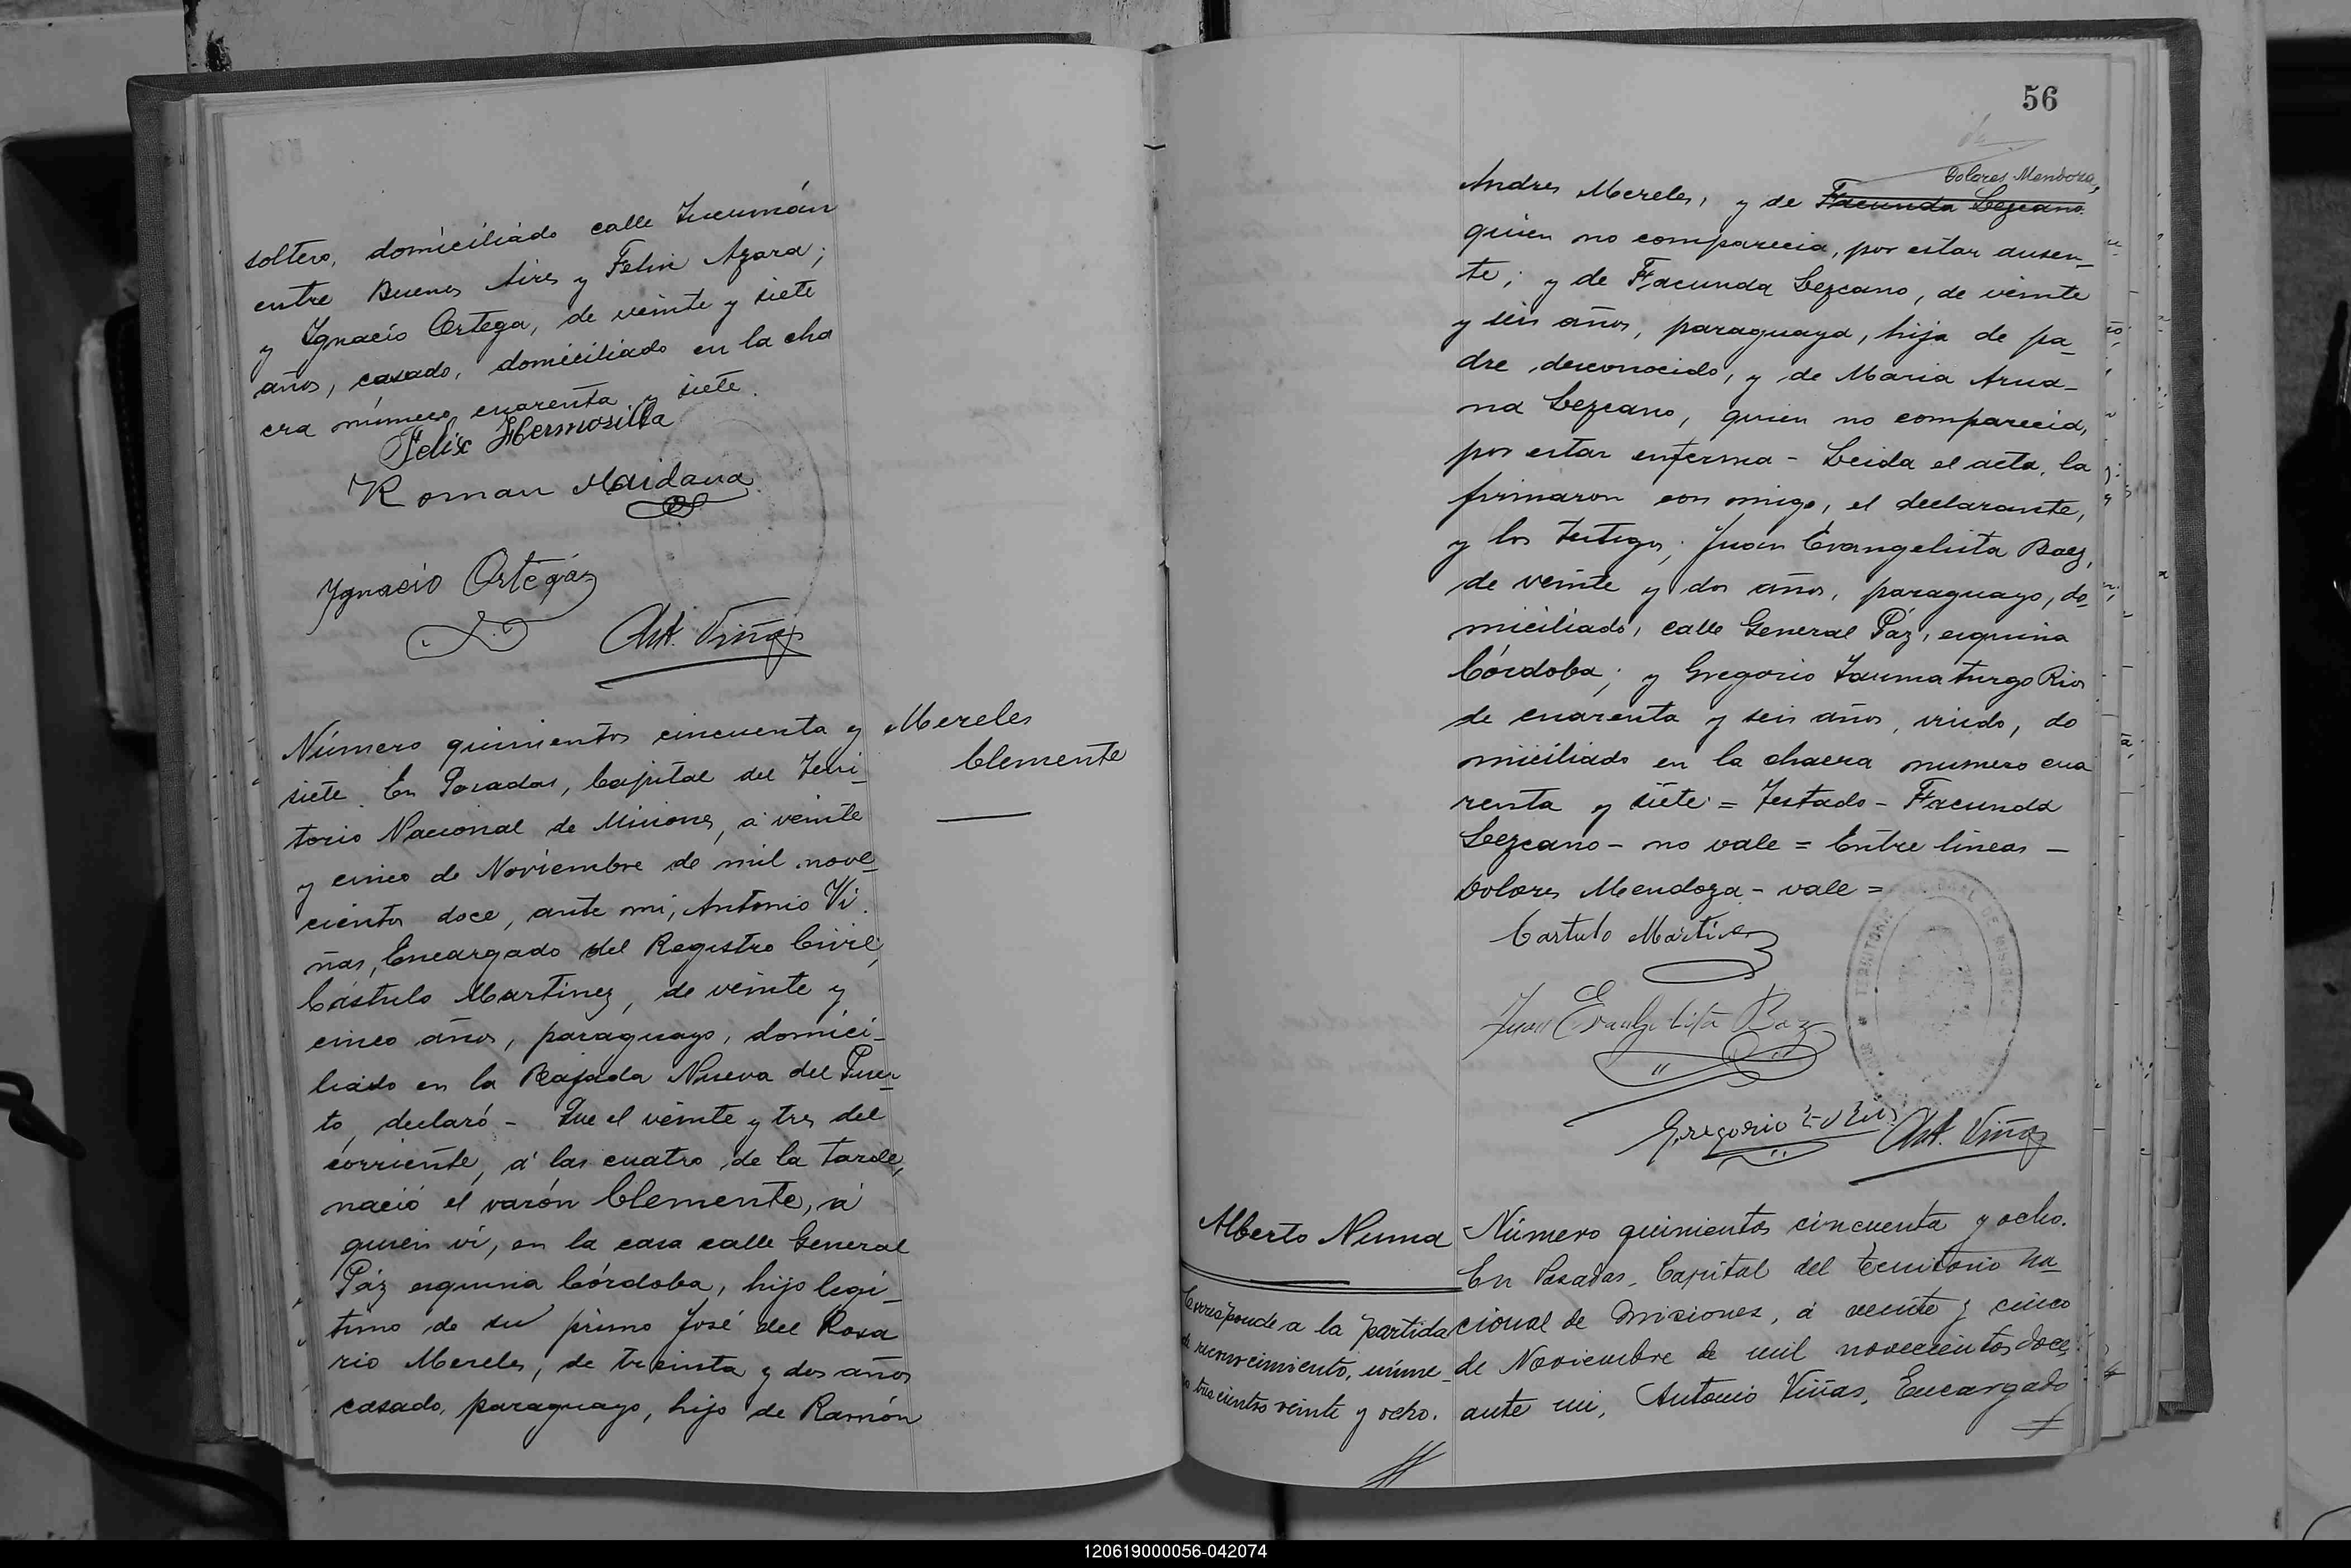 soltero, domiciliado calle Tucumán
entre Buenos Aires y Felix Azara;
y Ignacio Ortega, de veinte y siete
años, casado, domiciliado en la cha
cra número cuarenta y siete.
Felix Hermosilla
Roman Maidana
Ignacio Ortegáz
Ant. Viñas
Número quinientos cincuenta y
siete. En Posadas, Capital del Terri-
torio Nacional de Misiones, á veinte
y cinco de Noviembre de mil nove-
cientos doce, ante mi, Antonio Vi
ñas, Encargado del Registro Civil,
Cástulo Martinez, de veinte y
cinco años, paraguayo, domici-
liado en la Bajada Nueva del Puer-
to, declaró - Que el veinte y tres del
corriente, á las cuatro de la tarde,
nació el varón Clemente, á
quien ví, en la casa calle General
Páz esquina Córdoba, hijo legí-
timo de su primo José del Rosa
rio Mereles, de treinta y dos años
casado, paraguayo, hijo de Ramón
Mereles
Clemente
56
Dolores Mendoza,
Andres Mereles, y de Facunda Lezcano
quien no comparecia, por estar ausen-
te; y de Facunda Lezcano, de veinte
y seis años, paraguaya, hija de pa-
dre desconocido, y de Maria Arua-
na Lezcano, quien no comparecia,
por estar enferma - Leida el acta, la
firmaron con migo, el declarante,
y los testigos; Juan Evangelista Baez,
de veinte y dos años, paraguayo, do-
miciliado, calle General Páz, esquina
Córdoba; y Gregorio Taumaturgo Rios
de cuarenta y seis años, viudo, do
miciliado en la chacra numero cua
renta y siete = Testado - Facunda
Lezcano - no vale = Entre lineas -
Dolores Mendoza - vale =
Cartulo Martinez
Juan Evangelista Baz
Gregorio
Ant. Viñas
Alberto Numa
Corresponde a la partida
de reconocimiento, núme-
ro trescientos veinte y ocho.
Número quinientos cincuenta y ocho.
En Posadas, Capital del Territorio Na-
cional de Misiones, á veinte y cinco
de Noviembre de mil novecientos doce,
ante mi, Antonio Viñas, Encargado
120619000056-042074